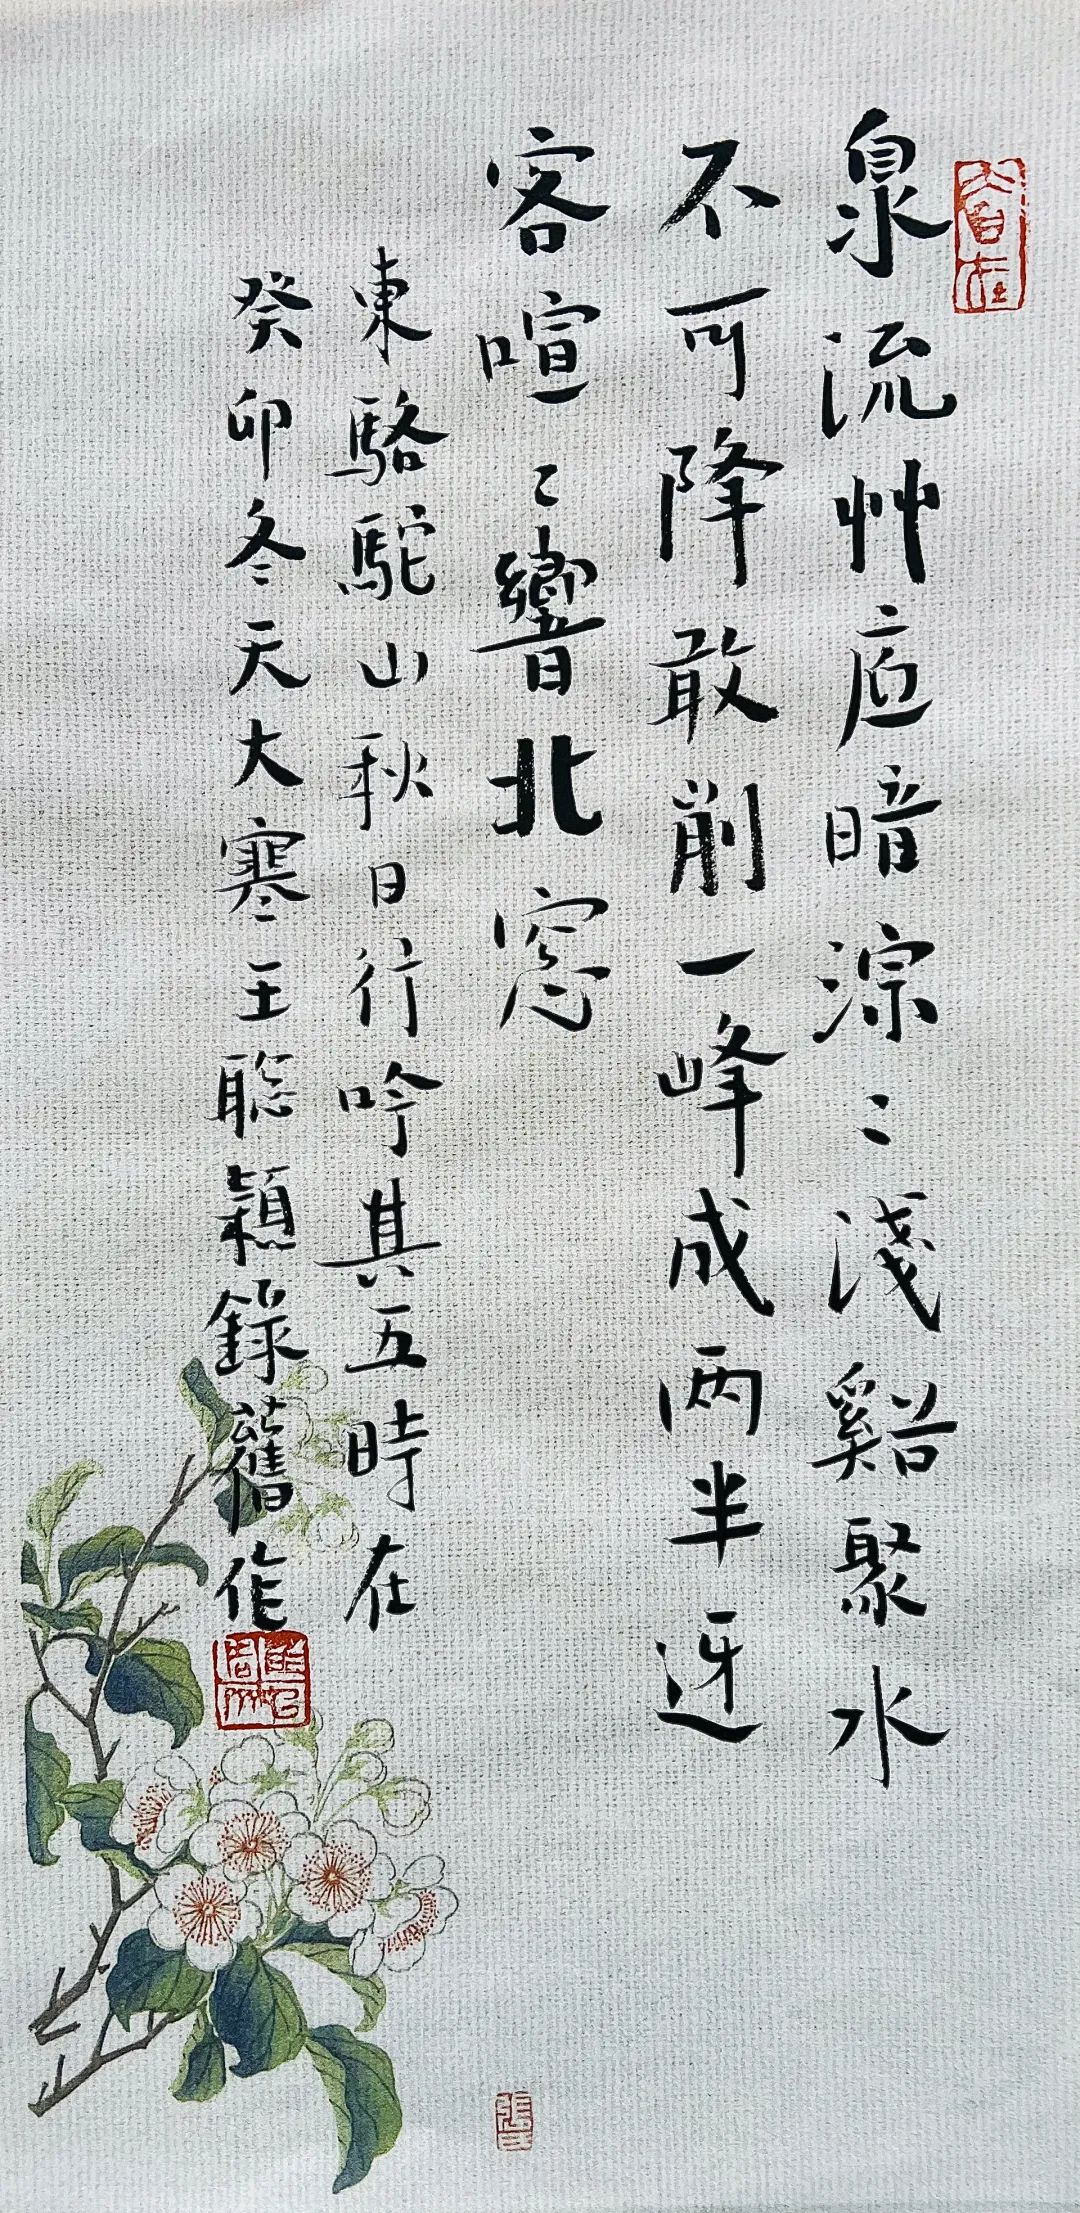 大自在
泉流艸底暗淙〻淺谿聚水
不可降敢削一峰成两半迓
客喧〻響北窓
東駱駝山秋日行吟其五時在
癸卯冬天大寒王聡穎錄舊作